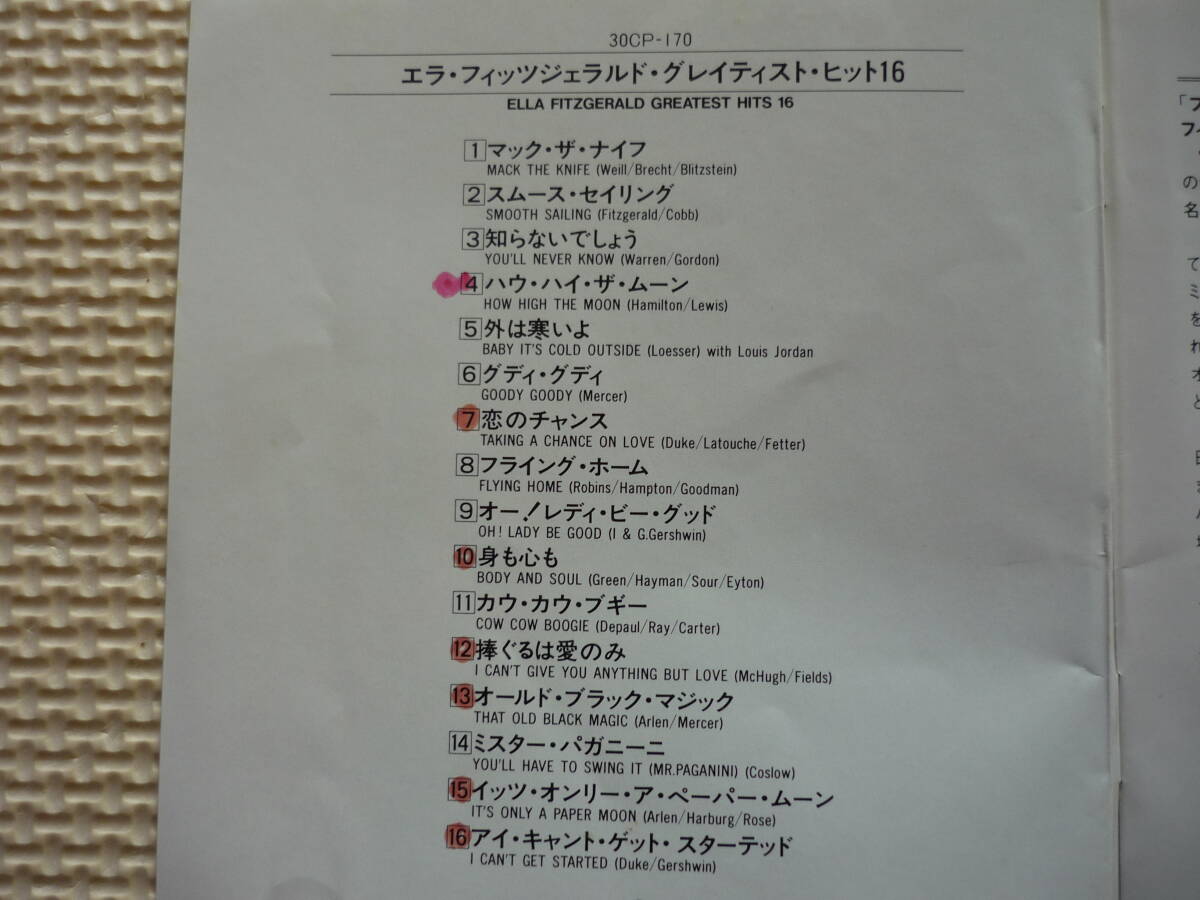 30CP-170
エラ・フィッツジェラルド・グレイティスト・ヒット16
ELLA FITZGERALD GREATEST HITS 16
1 マック・ザ・ナイフ
MACK THE KNIFE (Weill/Brecht/Blitzstein)
2 スムース・セイリング
SMOOTH SAILING (Fitzgerald/Cobb)
3 知らないでしょう
YOU'LL NEVER KNOW (Warren/Gordon)
4 ハウ・ハイ・ザ・ムーン
HOW HIGH THE MOON (Hamilton/Lewis)
5 外は寒いよ
BABY IT'S COLD OUTSIDE (Loesser) with Louis Jordan
6 グディ・グディ
GOODY GOODY (Mercer)
7 恋のチャンス
TAKING A CHANCE ON LOVE (Duke/Latouche/Fetter)
8 フライング・ホーム
FLYING HOME (Robins/Hampton/Goodman)
9 オー!レディ・ビー・グッド
OH! LADY BE GOOD (I & G.Gershwin)
10 身も心も
BODY AND SOUL (Green/Hayman/Sour/Eyton)
11 カウ・カウ・ブギー
COW COW BOOGIE (Depaul/Ray/Carter)
12 捧ぐるは愛のみ
I CAN'T GIVE YOU ANYTHING BUT LOVE (McHugh/Fields)
13 オールド・ブラック・マジック
THAT OLD BLACK MAGIC (Arlen/Mercer)
14 ミスター・パガニーニ
YOU'LL HAVE TO SWING IT (MR.PAGANINI) (Coslow)
15 イッツ・オンリー・ア・ペーパー・ムーン
IT'S ONLY A PAPER MOON (Arlen/Harburg/Rose)
16 アイ・キャント・ゲット・スターテッド
I CAN'T GET STARTED (Duke/Gershwin)
フィ
の
名
て
ミ
を
れ
オ
と